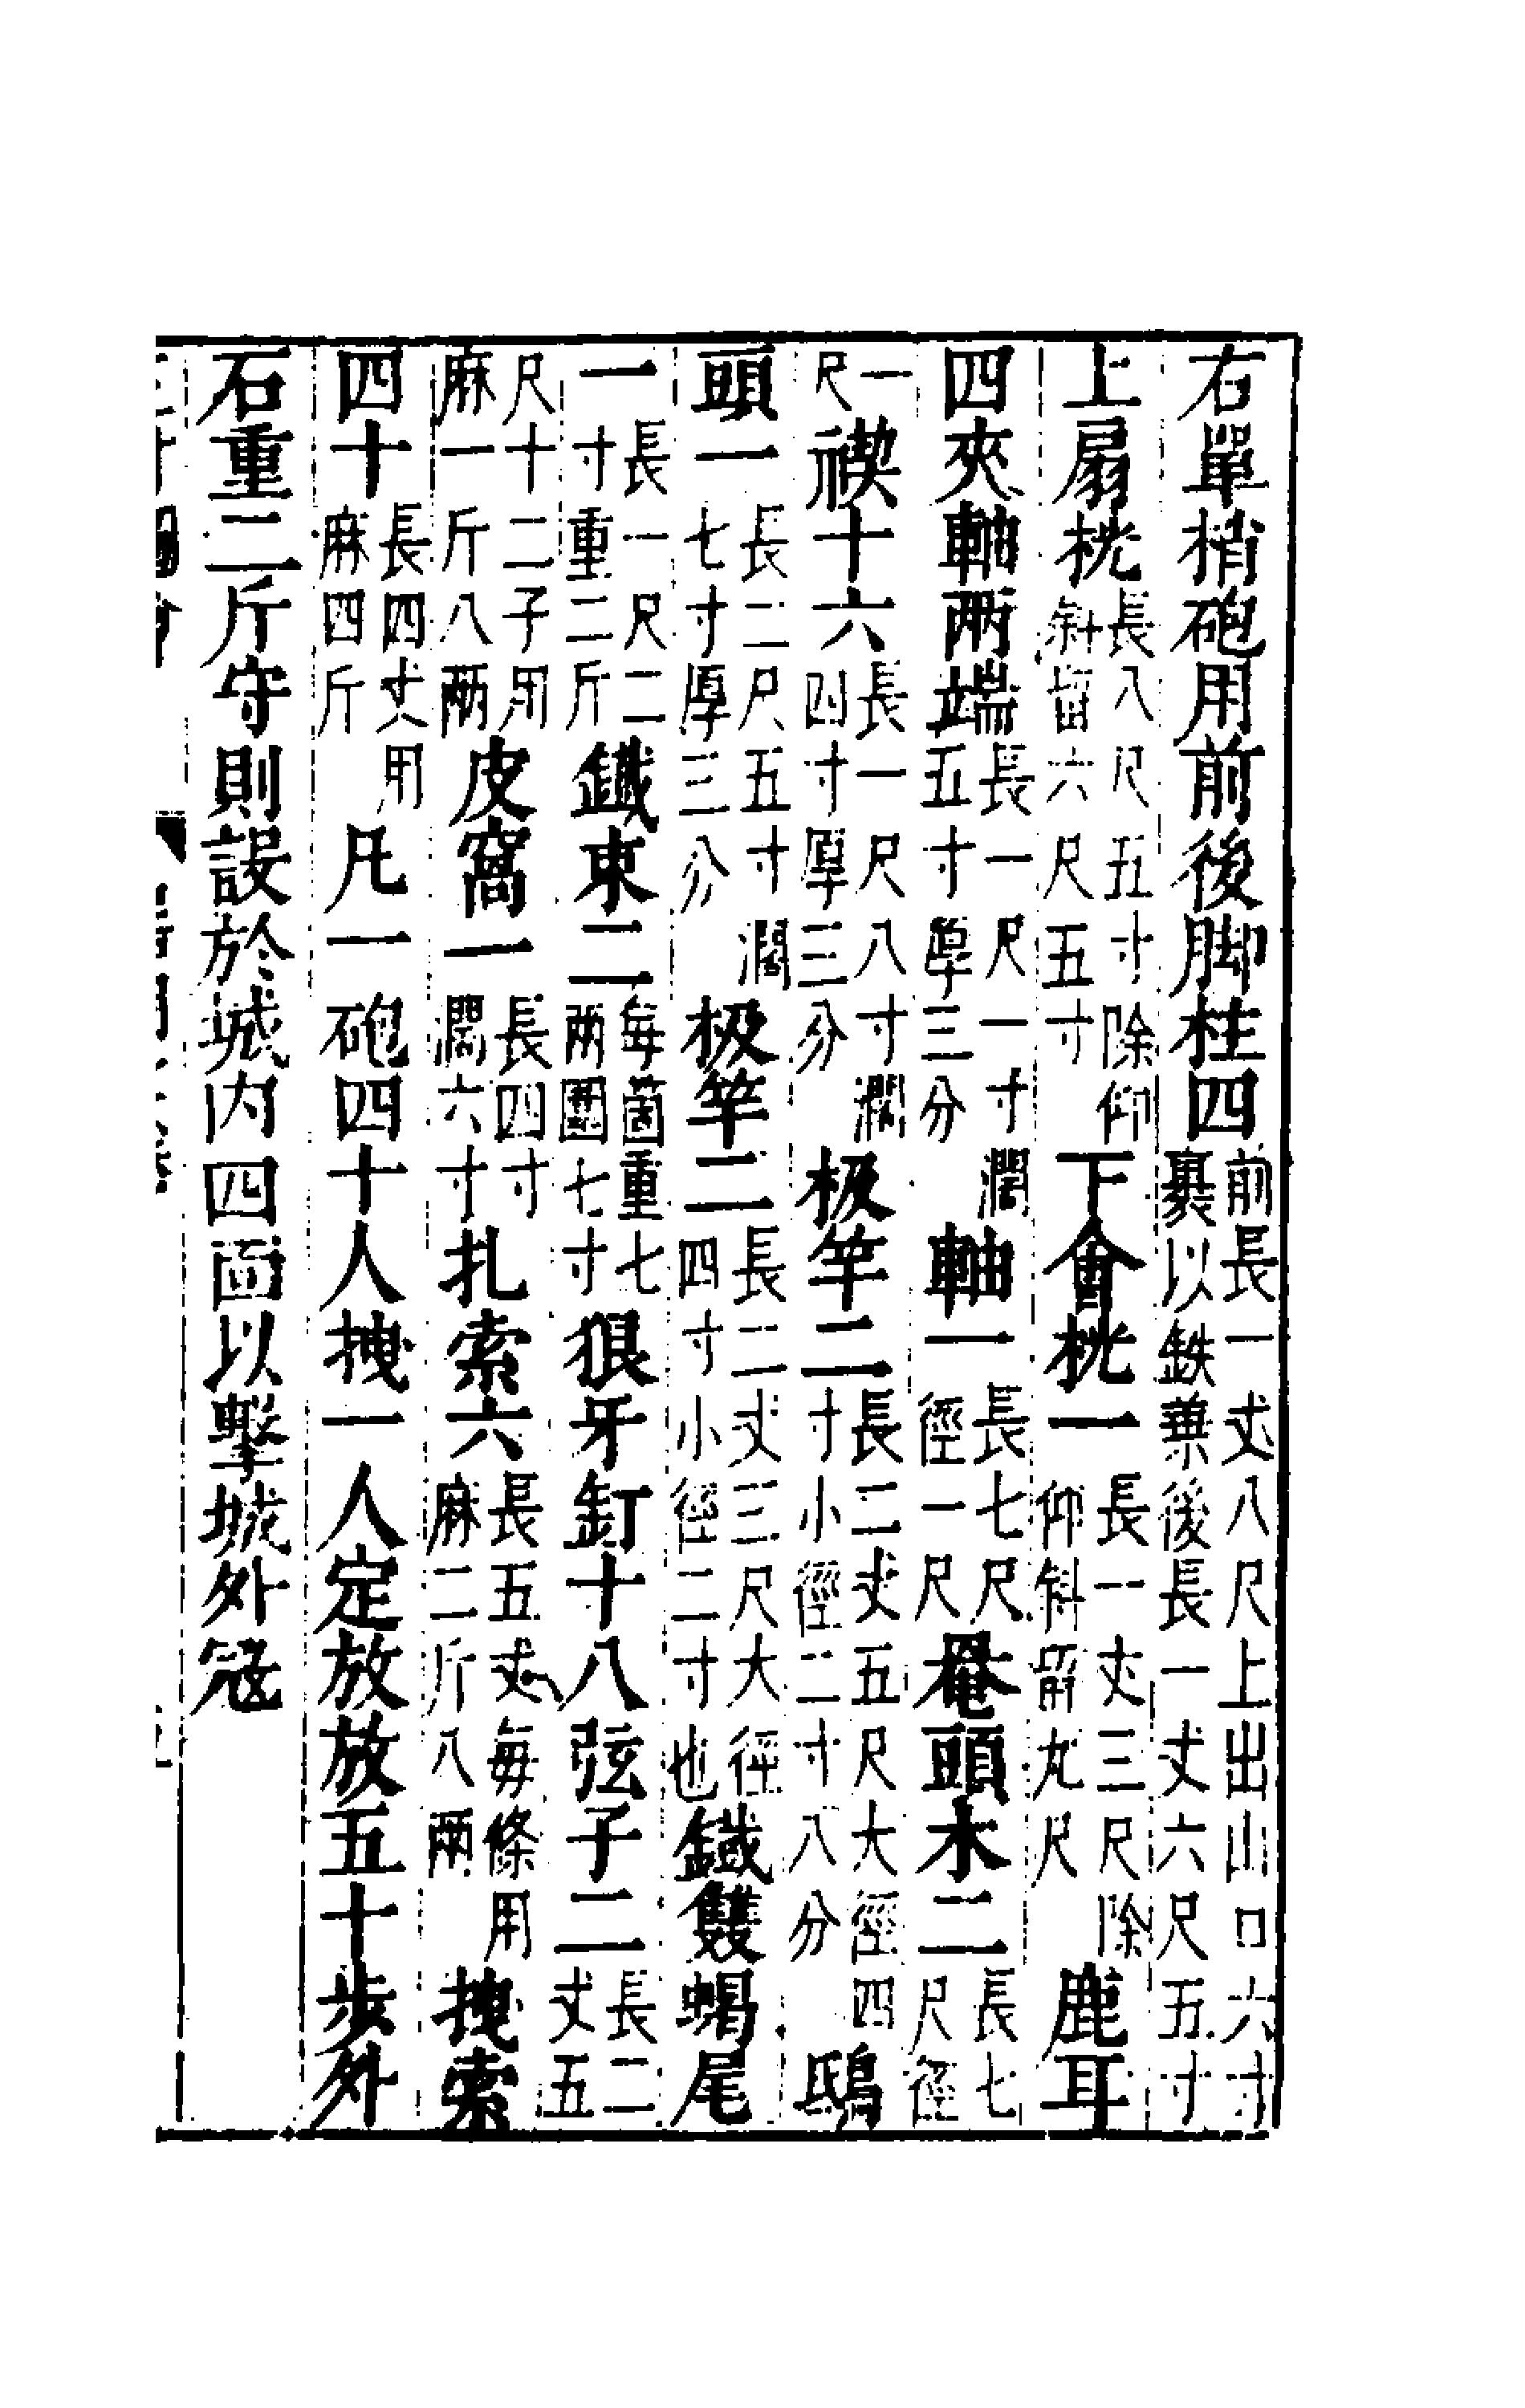 右單梢砲用前後脚柱四前長一丈八尺上出山口六寸裹以鉄兼後長一丈六尺五寸
上扇桄長八尺五寸除仰斜留六尺五寸下會桄一長一丈三尺除仰斜留九尺鹿耳
四夾軸兩端長一尺一寸濶五寸厚三分軸一長七尺徑一尺罨頭木二長七尺徑
一尺楔十六長一尺八寸濶四寸厚三分极竿二長二丈五尺大徑四寸小徑二寸八分鴟
頭一長二尺五寸濶七寸厚三分极竿二長二丈三尺大徑四寸小徑二寸也鐵雙蝎尾
一長一尺二寸重二斤鐵束二每箇重七兩圍七寸狼牙釘十八弦子二長二丈五
尺十二子用麻一斤八兩皮窩一長四寸濶六寸扎索六長五丈每條用麻二斤八兩拽索
四十長四丈用麻四斤凡一砲四十人拽一人定放放五十步外
石重二斤守則設於城内四面以擊城外冦